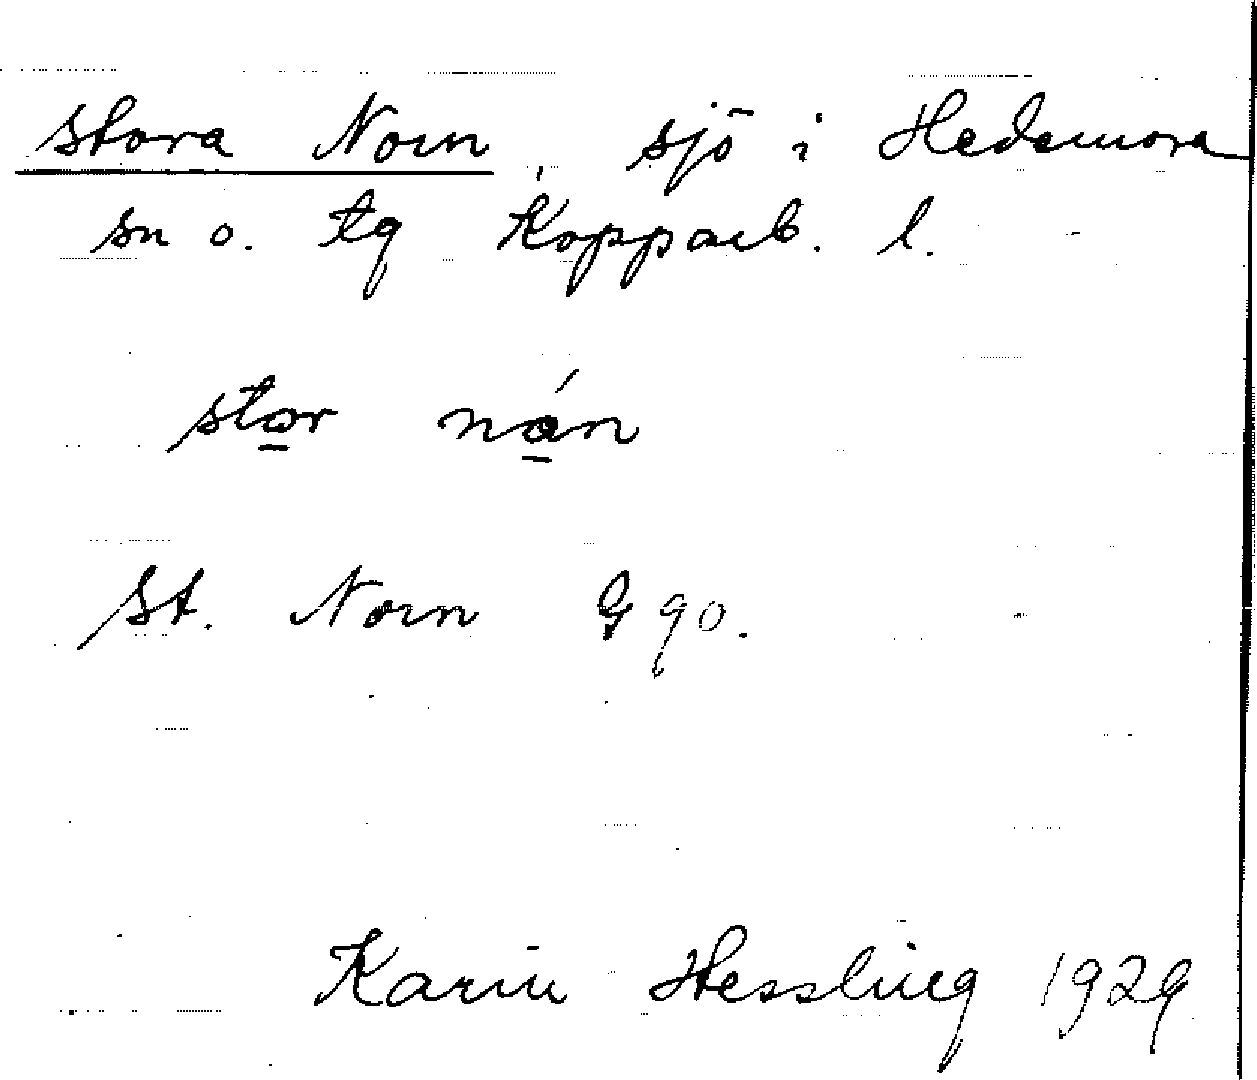 Stora Norn, sjö i Hedemora
sn o. tg Kopparb. l.
sto̲r nó̲n
St. Norn G 90.
Karin Hessling 1929